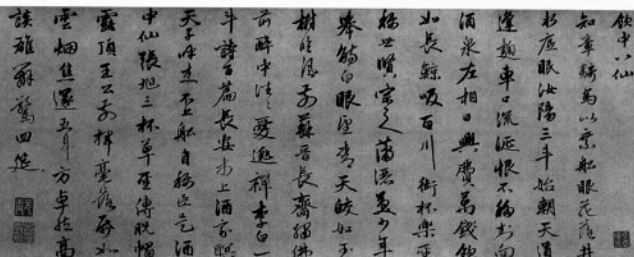 飲中八仙
知章騎馬似乘船眼花落井
水底眠汝陽三斗始朝天道
逢麴車口流涎恨不移封向
酒泉左相日興費萬錢飲
如長鯨吸百川銜杯樂聖
稱世賢宗之瀟灑美少年
舉觴白眼望青天皎如玉
樹臨風前蘇晉長齋繡佛
前醉中往々愛逃禪李白一
斗詩百篇長安市上酒家眠
天子呼來不上船自稱臣是酒
中仙張旭三杯草聖傳脫帽
露頂王公前揮毫落紙如
雲烟焦遂五斗方卓然高
談雄辯驚四筵